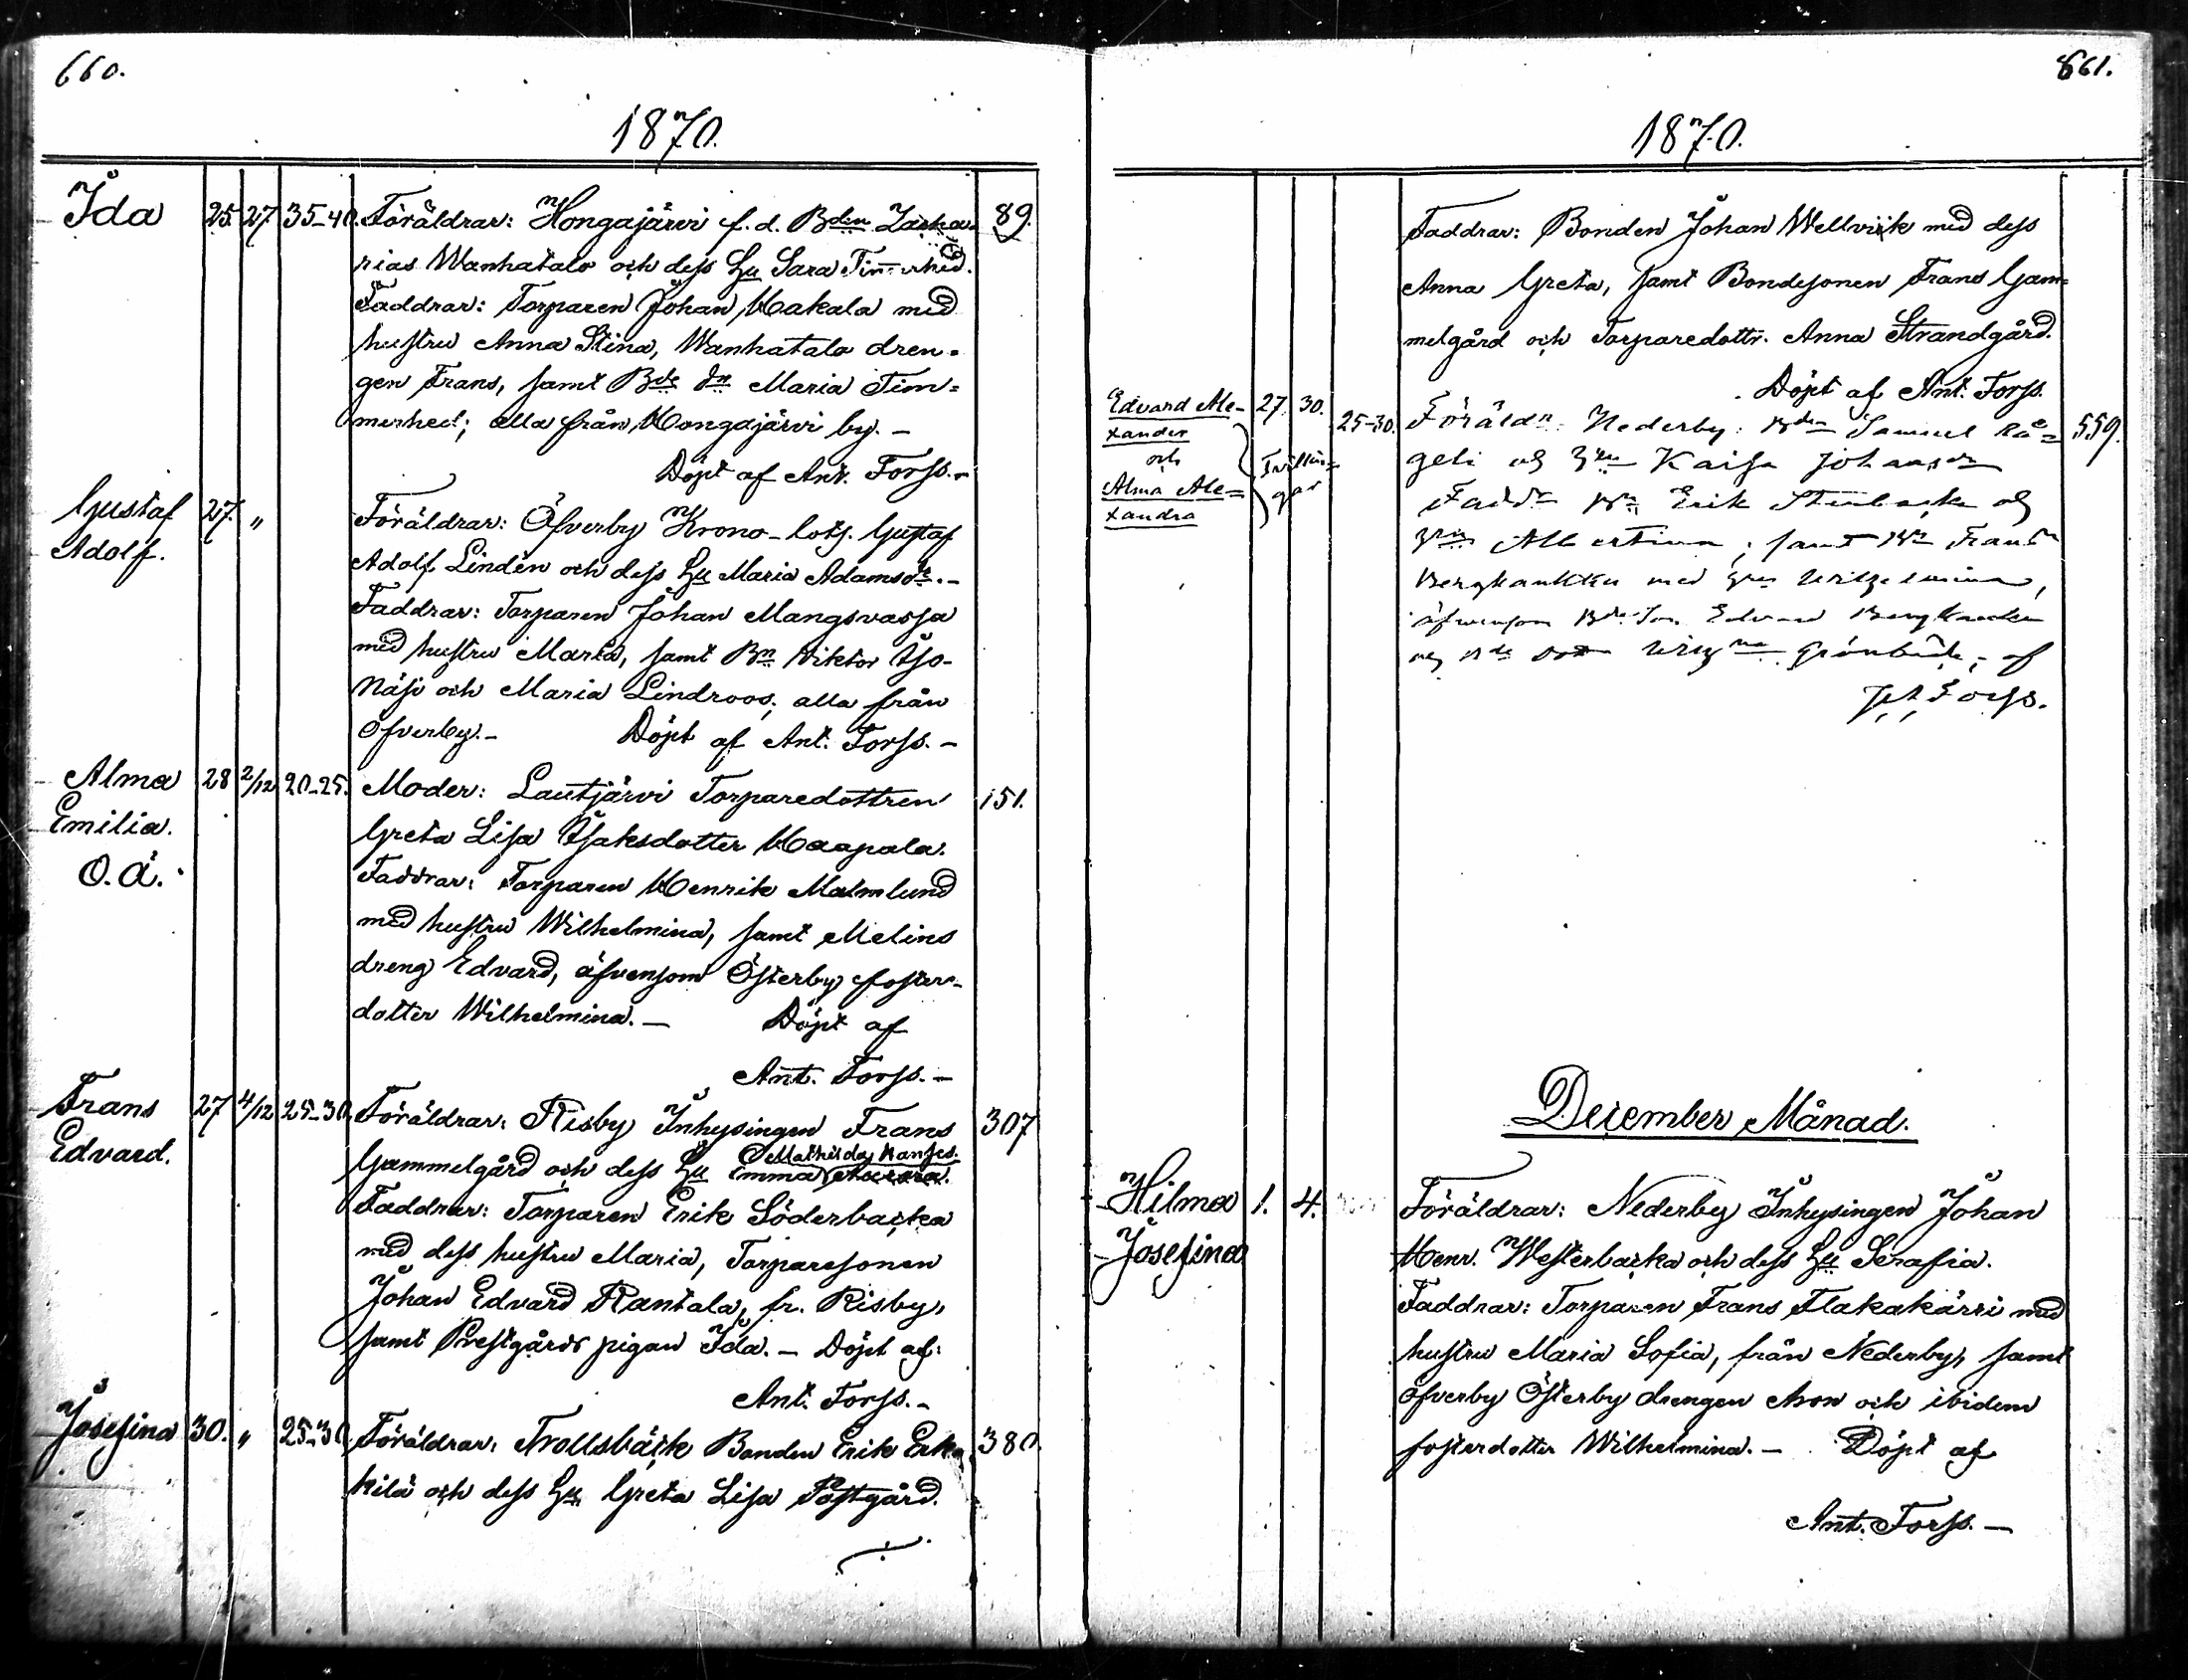 660.
1870.
Ida 25. 27 35-40. Föräldrar: Hongajärvi f. d. Bden Zacka- 89.
rias Wanhatalo och dess Hu Sara Timmerhed.
Faddrar: Torparen Johan Hakala med
hustru Anna Stina, Wanhatalo dren-
gen Frans, samt Bde dn Maria Tim-
merhed; alla från Hongajärvi by. -
Döpt af Ant. Forss. -
Gustaf 27. " Föräldrar: Öfverby Krono-lots. Gustaf
Adolf. Adolf Lindén och dess Hu Maria Adamsdr. -
Faddrar: Torparen Johan Mangsvassa
med hustru Maria, samt Bn Viktor Iso-
Näsi och Maria Lindroos; alla från
Öfverby. - Döpt af Ant. Forss. -
Alma 28 2/12 20-25. Moder: Lautjärvi Torparedottren 151.
Emilia. Greta Lisa Isaksdotter Haapala.
O. Ä. Faddrar: Torparen Henrik Malmlund
med hustru Wilhelmina, samt Melins
dreng Edvard, äfvensom Österby foster-
dotter Wilhelmina. - Döpt af
Ant. Forss. -
Frans 27 4/12 25-30. Föräldrar: Risby Inhysingen Frans 307
Mathilda Hansds.
Edvard. Gammelgård och dess Hu Emma
Faddrar: Torparen Erik Söderbacka
med dess hustru Maria, Torparesonen
Johan Edvard Rantala, fr. Risby,
samt Prestgårds pigan Ida. - Döpt af:
Ant. Forss. -
Josefina 30. " 25-30 Föräldrar: Trollsbäck Bonden Erik Erk- 380.
kilä och dess Hu Greta Lisa Påstgård.
661.
1870.
Faddrar: Bonden Johan Wellviik med dess
Anna Greta, samt Bondesonen Frans Gam-
melgård och Torparedottr. Anna Strandgård.
Döpt af Ant. Forss.
Edvard Ale- 27. 30. 25-30. Föräldr: Nederby: Bden Samuel 559.
xander
och Tvillin-
gar
Alma Ale-
xandra
Kaisa Johansdr
Fadd. Bn Erik Stenbacka og
Hun Albertina, samt Bn Frans
Bergkanttu med Hun Wilhelmina,
äfvensom Bde Son Edvard
Grönbäck, af
Forss.
December Månad.
Hilma 1. 4. Föräldrar: Nederby Inhysingen Johan
Josefina Henr. Westerbacka och dess Hu Serafia.
Faddrar: Torparen Frans Flakakärri med
hustru Maria Sofia, från Nederby, samt
Öfverby Österby drengen Aron och ibidem
fosterdotter Wilhelmina. - Döpt af
Ant. Forss. -